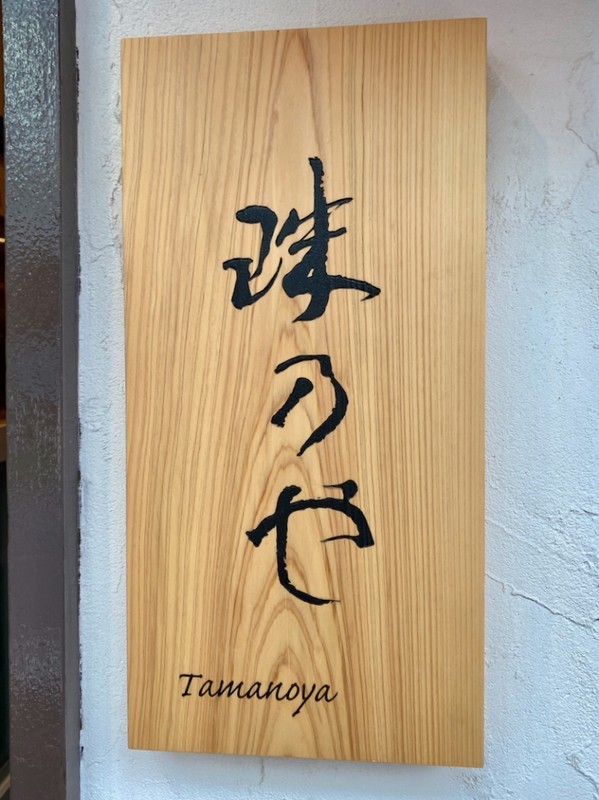 珠乃や
Tamanoya